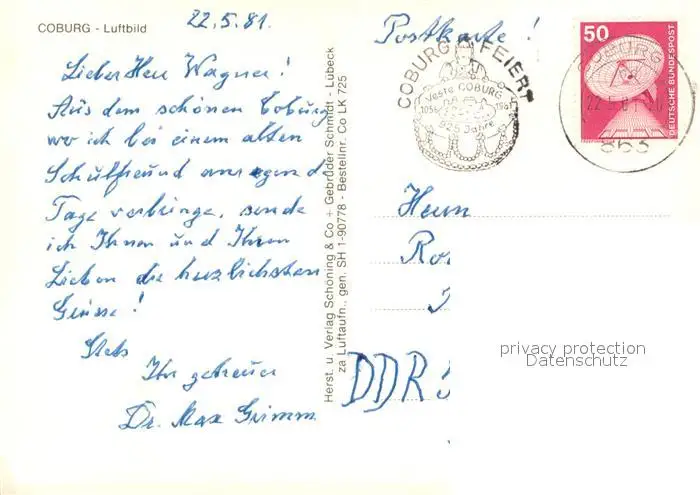 COBURG - Luftbild
22.5.81.
Lieber Herr Wagner!
Aus dem schönen Coburg,
wo ich bei einem alten
Schulfreund anregend
Tage verbringe, sende
ich Ihnen und Ihren
Lieben die herzlichsten
Grüsse!
Stets
Ihr getreuer
Dr. Max Grimm
Herst. u. Verlag Schöning & Co + Gebrüder Schmidt - Lübeck
za Luftaufn., gen. SH 1-90778 - Bestellnr. Co LK 725
Postkarte!
COBURG FEIERT
Veste COBURG
1056 198
925 Jahre
50
DEUTSCHE BUNDESPOST
COBURG 1
22.5.81
863
Herrn
Ro
DDR
privacy protection
Datenschutz